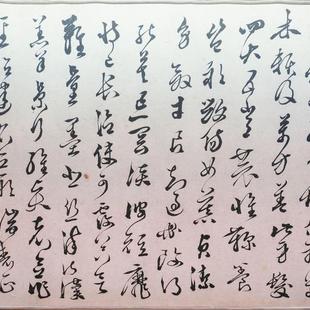 木賴及萬方蓋此身髮
四大五常恭惟鞠養
豈敢毀傷女慕貞潔
男效才良知過必改得
能莫忘罔談彼短靡
恃己長信使可覆器欲
難量墨悲絲染詩讚
羔羊景行維賢克念作
聖德建名立形端表正